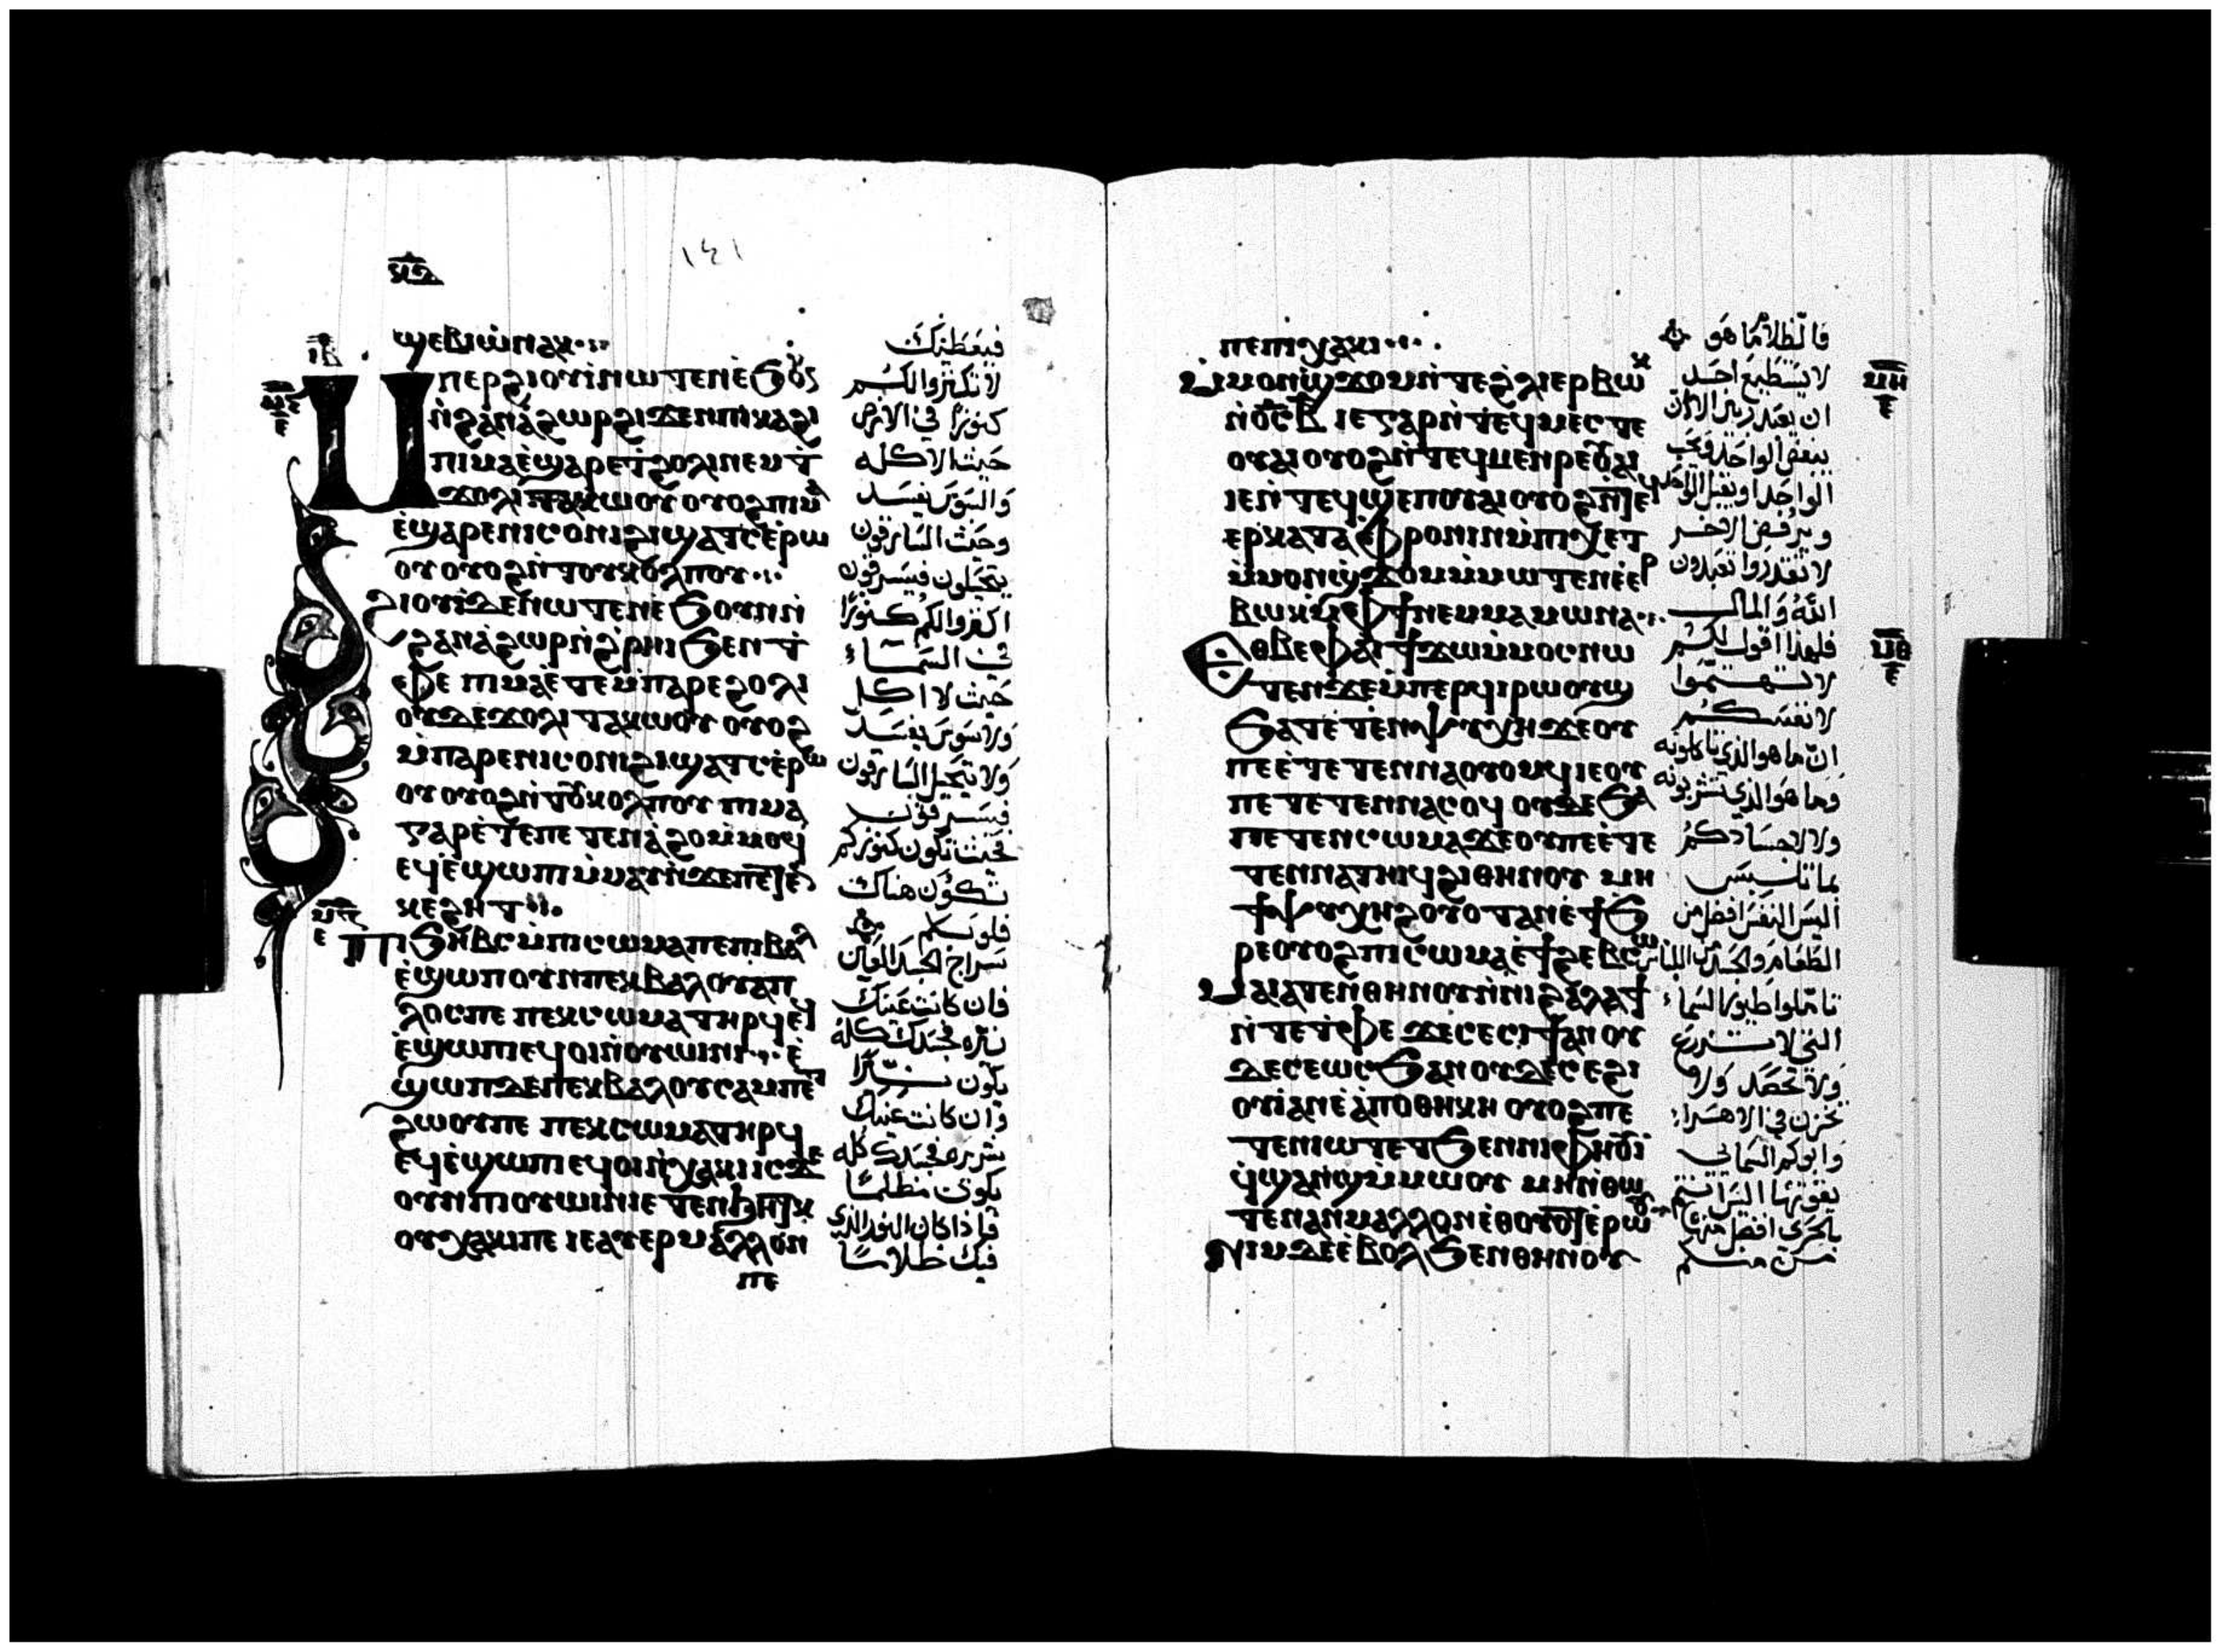 ١٤١
ϣⲉⲃⲓⲱⲛⲁⲕ
ⲙⲡⲉⲣϩⲓⲟⲩⲓ̀ⲛⲱⲧⲉⲛⲉ̀ϧⲟⲩ
ⲛ̀ϩⲁⲛⲁ̀ϩⲱⲣϩⲓϫⲉⲛⲡⲓⲕⲁϩⲓ
ⲡⲓⲙⲁⲉ̀ϣⲁⲣⲉϯϩⲟⲗⲓⲛⲉⲙϯ
ϫⲟⲗⲓⲧⲁⲕⲱⲟⲩ ⲟⲩⲟϩⲡⲓⲙⲁ
ⲉ̀ϣⲁⲣⲉⲛⲓⲥⲟⲛⲓϩⲓϣⲁⲧⲥⲉ̀ⲣⲱ
ⲟⲩ ⲟⲩⲟϩⲛ̀ⲧⲟⲩⲕⲟⲗⲡⲟⲩ
ϩⲓⲟⲩⲓ̀ⲇⲉⲛⲱⲧⲉⲛⲉϧⲟⲩⲛⲛ̀
ϩⲁⲛⲁ̀ϩⲱⲣⲛ̀ϩ̀ⲣⲏⲓϧⲉⲛⲧ̀
ⲫⲉ ⲡⲓⲙⲁⲉ̀ⲧⲉⲙ̀ⲡⲁⲣⲉϩⲟⲗⲓ
ⲟⲩⲇⲉϫⲟⲗⲓ ⲧⲁⲕⲱⲟⲩ ⲟⲩⲟϩ
ⲙ̀ⲡⲁⲣⲉⲛⲓⲥⲟⲛⲓϩⲓϣⲁⲧⲥⲉ̀ⲣⲱ
ⲟⲩ ⲟⲩⲟϩⲛ̀ⲧⲟⲩⲕⲟⲗⲡⲟⲩ ⲡⲓⲙⲁ
ⲅⲁⲣⲉ̀ⲧⲉⲡⲉⲧⲉⲛⲁ̀ϩⲟⲙ̀ⲙⲟϥ
ⲉϥⲉ̀ϣⲱⲡⲓⲙ̀ⲙⲁⲩ
ⲕⲉϩⲏⲧ
ⲡⲓϧⲏⲃⲥⲙ̀ⲡⲓⲥⲱⲙⲁⲡⲉⲡⲓⲃⲁⲗ
ⲉ̀ϣⲱⲡⲟⲩⲛⲡⲉⲕⲃⲁⲗⲟⲩⲁⲡ
ⲗⲟⲩⲥⲡⲉ ⲡⲉⲕⲥⲱⲙⲁⲧⲏⲣϥ
ⲉ̀ϣⲱⲡⲓⲉϥⲟⲓⲛ̀ⲟⲩⲱⲓⲛⲓ ⲉ̀
ϣⲱⲡⲇⲉⲡⲉⲕⲃⲁⲗⲟⲩⲥⲁⲙⲡⲉⲧ
ϩⲱⲟⲩⲡⲉ ⲡⲉⲕⲥⲱⲙⲁⲧⲏⲣϥ
ⲉϥⲉ̀ϣⲱⲡⲓⲉϥⲟⲓⲛ̀ⲭⲁⲕⲓⲓⲥϫⲉ
ⲟⲩⲛⲡⲓⲟⲩⲱⲓⲛⲓⲉⲧⲉⲛϧⲏⲧⲕ
ⲟⲩⲭⲁⲕⲓⲡⲉ ⲓⲉⲁⲩⲉⲣⲙⲁⲗⲗⲟⲛ
ⲡⲉ
فيعطيك
لا تكنزوا لكم
كنوزا في الارض
حيث الاكله
والسوس يفسد
وحيث السارقون
يتحيلون فيسرقون
اكنزوا لكم كنوزا
في السماء
حيث لا اكل
ولا سوس يفسد
ولا يتحيل السارقون
فيسرقون
فحيث تكون كنوزكم
تكون هناك
قلوبكم
سراج الجسد العين
فان كانت عينك
نيره فجسدك كله
يكون نيرا
وان كانت عينك
شريره فجسدك كله
يكون مظلما
فاذا كان النور الذي
فيك ظلاما
ⲡⲉⲡⲓⲭⲁⲕⲓ
ⲙ̀ⲙⲟⲛϣϫⲟⲙⲛ̀ⲧⲉϩ̀ⲗⲓⲉⲣⲃⲱⲕ
ⲛ̀ⲟ̅ⲥ̅ⲃ̅ ⲓⲉ ⲅⲁⲣⲛ̀ⲧⲉϥⲙⲉⲥⲧⲉ
ⲟⲩⲁⲓⲟⲩⲟϩⲛ̀ⲧⲉϥⲙⲉⲛⲣⲉⲟⲩⲁⲓ
ⲓⲉⲛ̀ⲧⲉϥϣⲉⲡⲟⲩⲁⲓⲟⲩⲟϩⲛ̀ⲧⲉϥ
ⲉⲣⲕⲁⲧⲁⲫⲣⲟⲛⲓⲛⲙ̀ⲡⲓⲭⲉⲧ
ⲙ̀ⲙⲟⲛϣ̀ϫⲟⲙⲙ̀ⲙⲱⲧⲉⲛⲉ̀ⲉⲣ
ⲃⲱⲕⲙ̀ⲫϯⲛⲉⲙⲙⲁⲙⲱⲛⲁ
ⲉⲑⲃⲉⲫⲁⲓϯϫⲱⲙ̀ⲙⲟⲥⲛⲱ
ⲧⲉⲛϫⲉⲙ̀ⲡⲉⲣϥⲓⲣⲱⲟⲩϣ
ϧⲁⲧⲉ̀ⲧⲉⲛⲯⲩⲭⲏϫⲉⲟⲩ
ⲡⲉⲉ̀ⲧⲉⲧⲉⲛⲛⲁⲟⲩⲟⲙϥⲓⲉⲟⲩ
ⲡⲉ ⲧⲉⲧⲉⲛⲛⲁⲥⲟϥ ⲟⲩⲇⲉϧⲁ
ⲡⲉⲧⲉⲛⲥⲱⲙⲁϫⲉⲟⲩⲡⲉⲉ̀ⲧⲉ
ⲧⲉⲛⲛⲁⲧⲏⲓϥϩⲓⲑⲏⲛⲟⲩ ⲙⲏ
ϯⲯⲩⲭⲏϩⲟⲩⲟ̀ ⲧⲁⲛⲉ̀ϯϧ
ⲣⲉⲟⲩⲟϩⲡⲓⲥⲱⲙⲁⲉ̀ϯϩⲉⲃⲥⲱ
ⲙⲁⲓⲁⲧⲉⲛⲑⲏⲛⲟⲩⲛ̀ⲛⲓϩⲁⲗⲁϯ
ⲛ̀ⲧⲉⲧ̀ⲫⲉ ϫⲉⲥⲉⲥⲓϯⲁⲛⲟⲩ
ⲇⲉⲥⲉⲱⲥϧⲁⲛⲟⲩⲇⲉⲥⲉϩⲓ
ⲟⲩⲓ̀ⲁⲛⲉ̀ⲁ̀ⲡⲟⲑⲏⲕⲏ ⲟⲩⲟϩⲡⲉ
ⲧⲉⲛⲓⲱⲧⲉⲧϧⲉⲛⲛⲓⲫⲏⲟⲩⲓ̀
ϥ̀ϣⲁⲛϣⲙ̀ⲙⲱⲟⲩ ⲙⲏⲛ̀ⲑⲱ
ⲧⲉⲛⲁⲛⲙⲁⲗⲗⲟⲛⲉ̀ⲑⲟⲩⲟⲧⲉ̀ⲣⲱⲟⲩ
ⲛⲓⲙⲇⲉⲉ̀ⲃⲟⲗϧⲉⲛⲑⲏⲛⲟⲩ
فالظلام ما هو
لا يستطيع احد
ان يعبد ربين الا ان
يبغض الواحد ويحب
الواحد او يقبل الواحد
ويرفض الاخر
لا تقدروا تعبدون
الله والمال
فلهذا اقول لكم
لا تهتموا
لانفسكم
ان ما هو الذي تاكلونه
وما هو الذي تشربونه
ولا لاجسادكم
بما تلبس
اليس النفس افضل من
الطعام والجسد من اللباس
تاملوا طيور السماء
التي لا تزرع
ولا تحصد ولا
تخزن في الاهراء
وابوكم السماي
يقوتها اليس انتم
بالحري افضل منها
من منكم